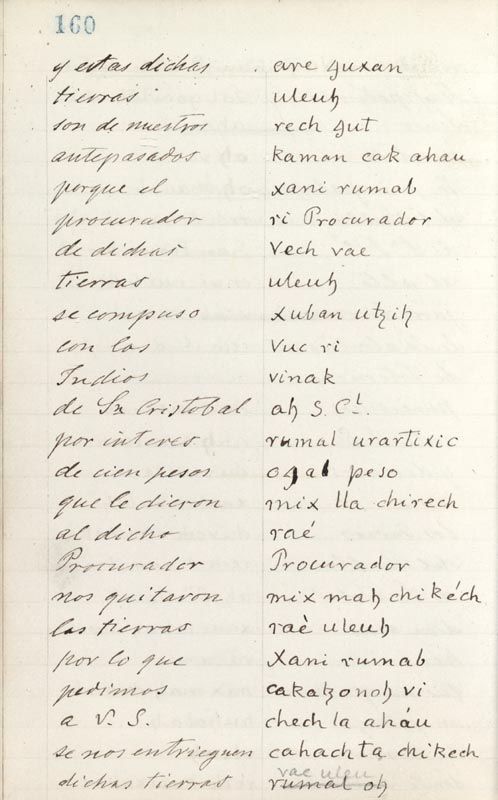 160
y estas dichas are ꜯuxan
tierras uleuꜧ
son de nuestros rech ꜯut
antepasados kaman cak ahau
porque el xani rumal
procurador ri Procurador
de dichas vech rae
tierras uleuꜧ
se compuso xuban utziꜧ
con los vuc ri
Indios vinak
de Sn Cristobal aꜧ S. Cl.
por interes rumal urartixic
de cien pesos oꜯal peso
que le dieron mix lla chirech
al dicho raé
Procurador Procurador
nos quitaron mix maꜧ chikéch
las tierras raè uleuꜧ
por lo que Xani rumal
pedimos cakatzonoꜧ vi
a V. S. chech la aháu
se nos entrieguen cahach ta chikech
rae uleu
dichas tierras rumal oꜧ